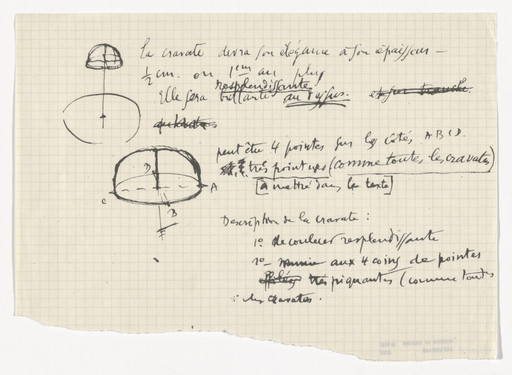 La cravate devra son élégance à son épaisseur —
½ cm. ou 1 cm au plus
resplendissante
Elle sera brillante au dessus. et sur tranche.
peut être 4 pointes sur les côtés A B C D.
très pointues (comme toutes les cravates)
[à mettre dans le texte]
D
A
C
B
Description de la cravate :
1º de couleur resplendissante
2º — munie aux 4 coins de pointes
effilées très piquantes (comme toutes
les cravates.